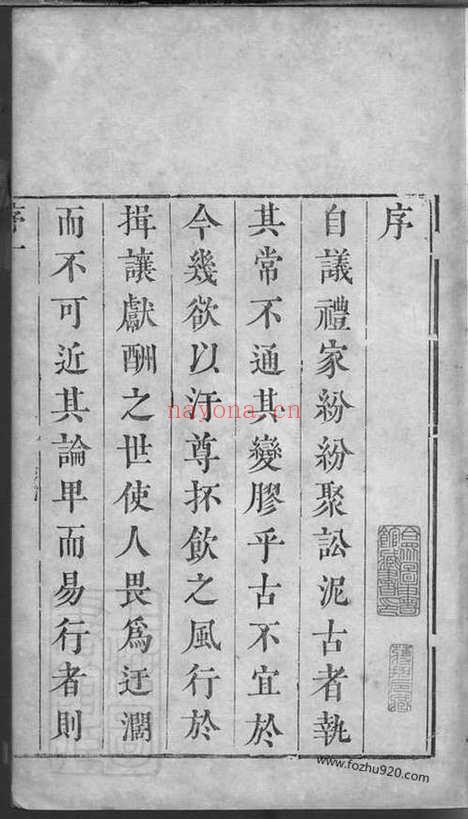 序
自議禮家紛紛聚訟泥古者執
其常不通其變膠乎古不宜於
今幾欲以汙尊抔飲之風行於
揖讓獻酬之世使人畏為迂濶
而不可近其論卑而易行者則
序一
nayona.cn
www.fozhu920.com